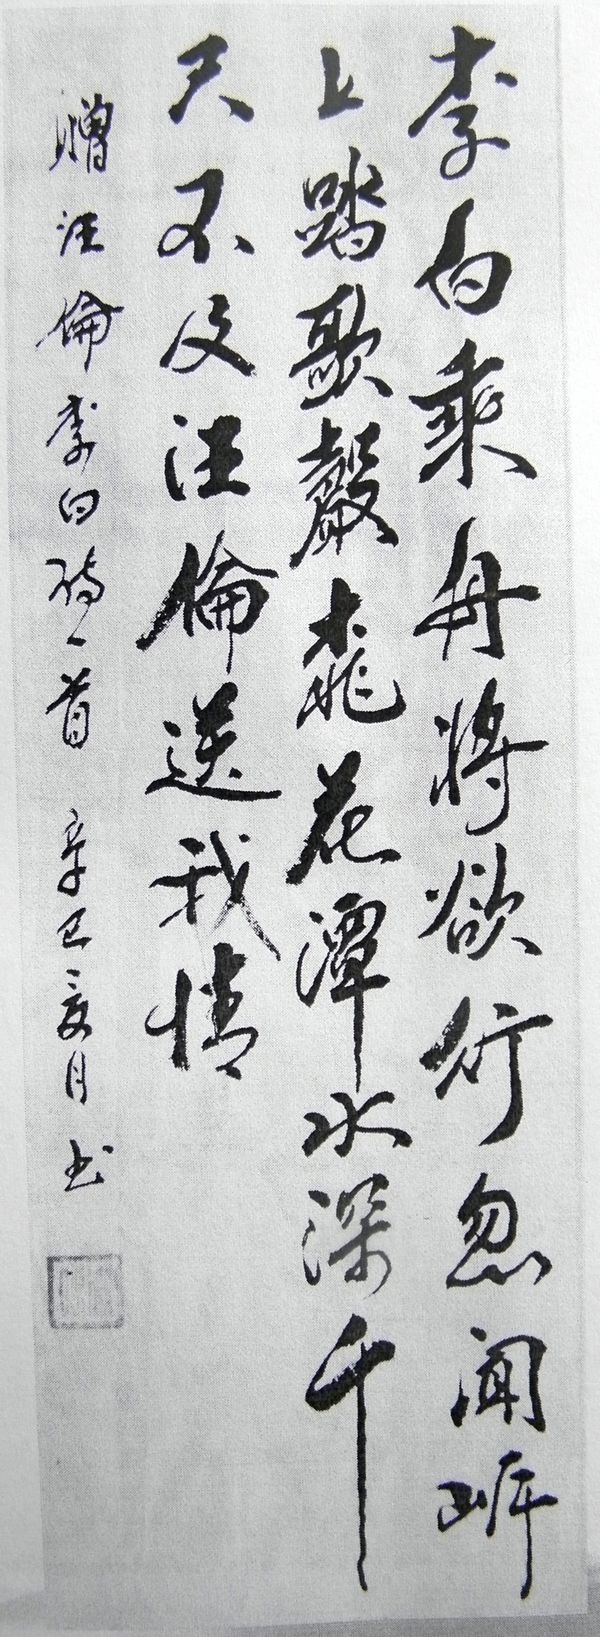 李白乘舟將欲行忽聞岍
上踏歌聲桃花潭水深千
尺不及汪倫送我情
贈汪倫李白詩一首 辛巳夏月書